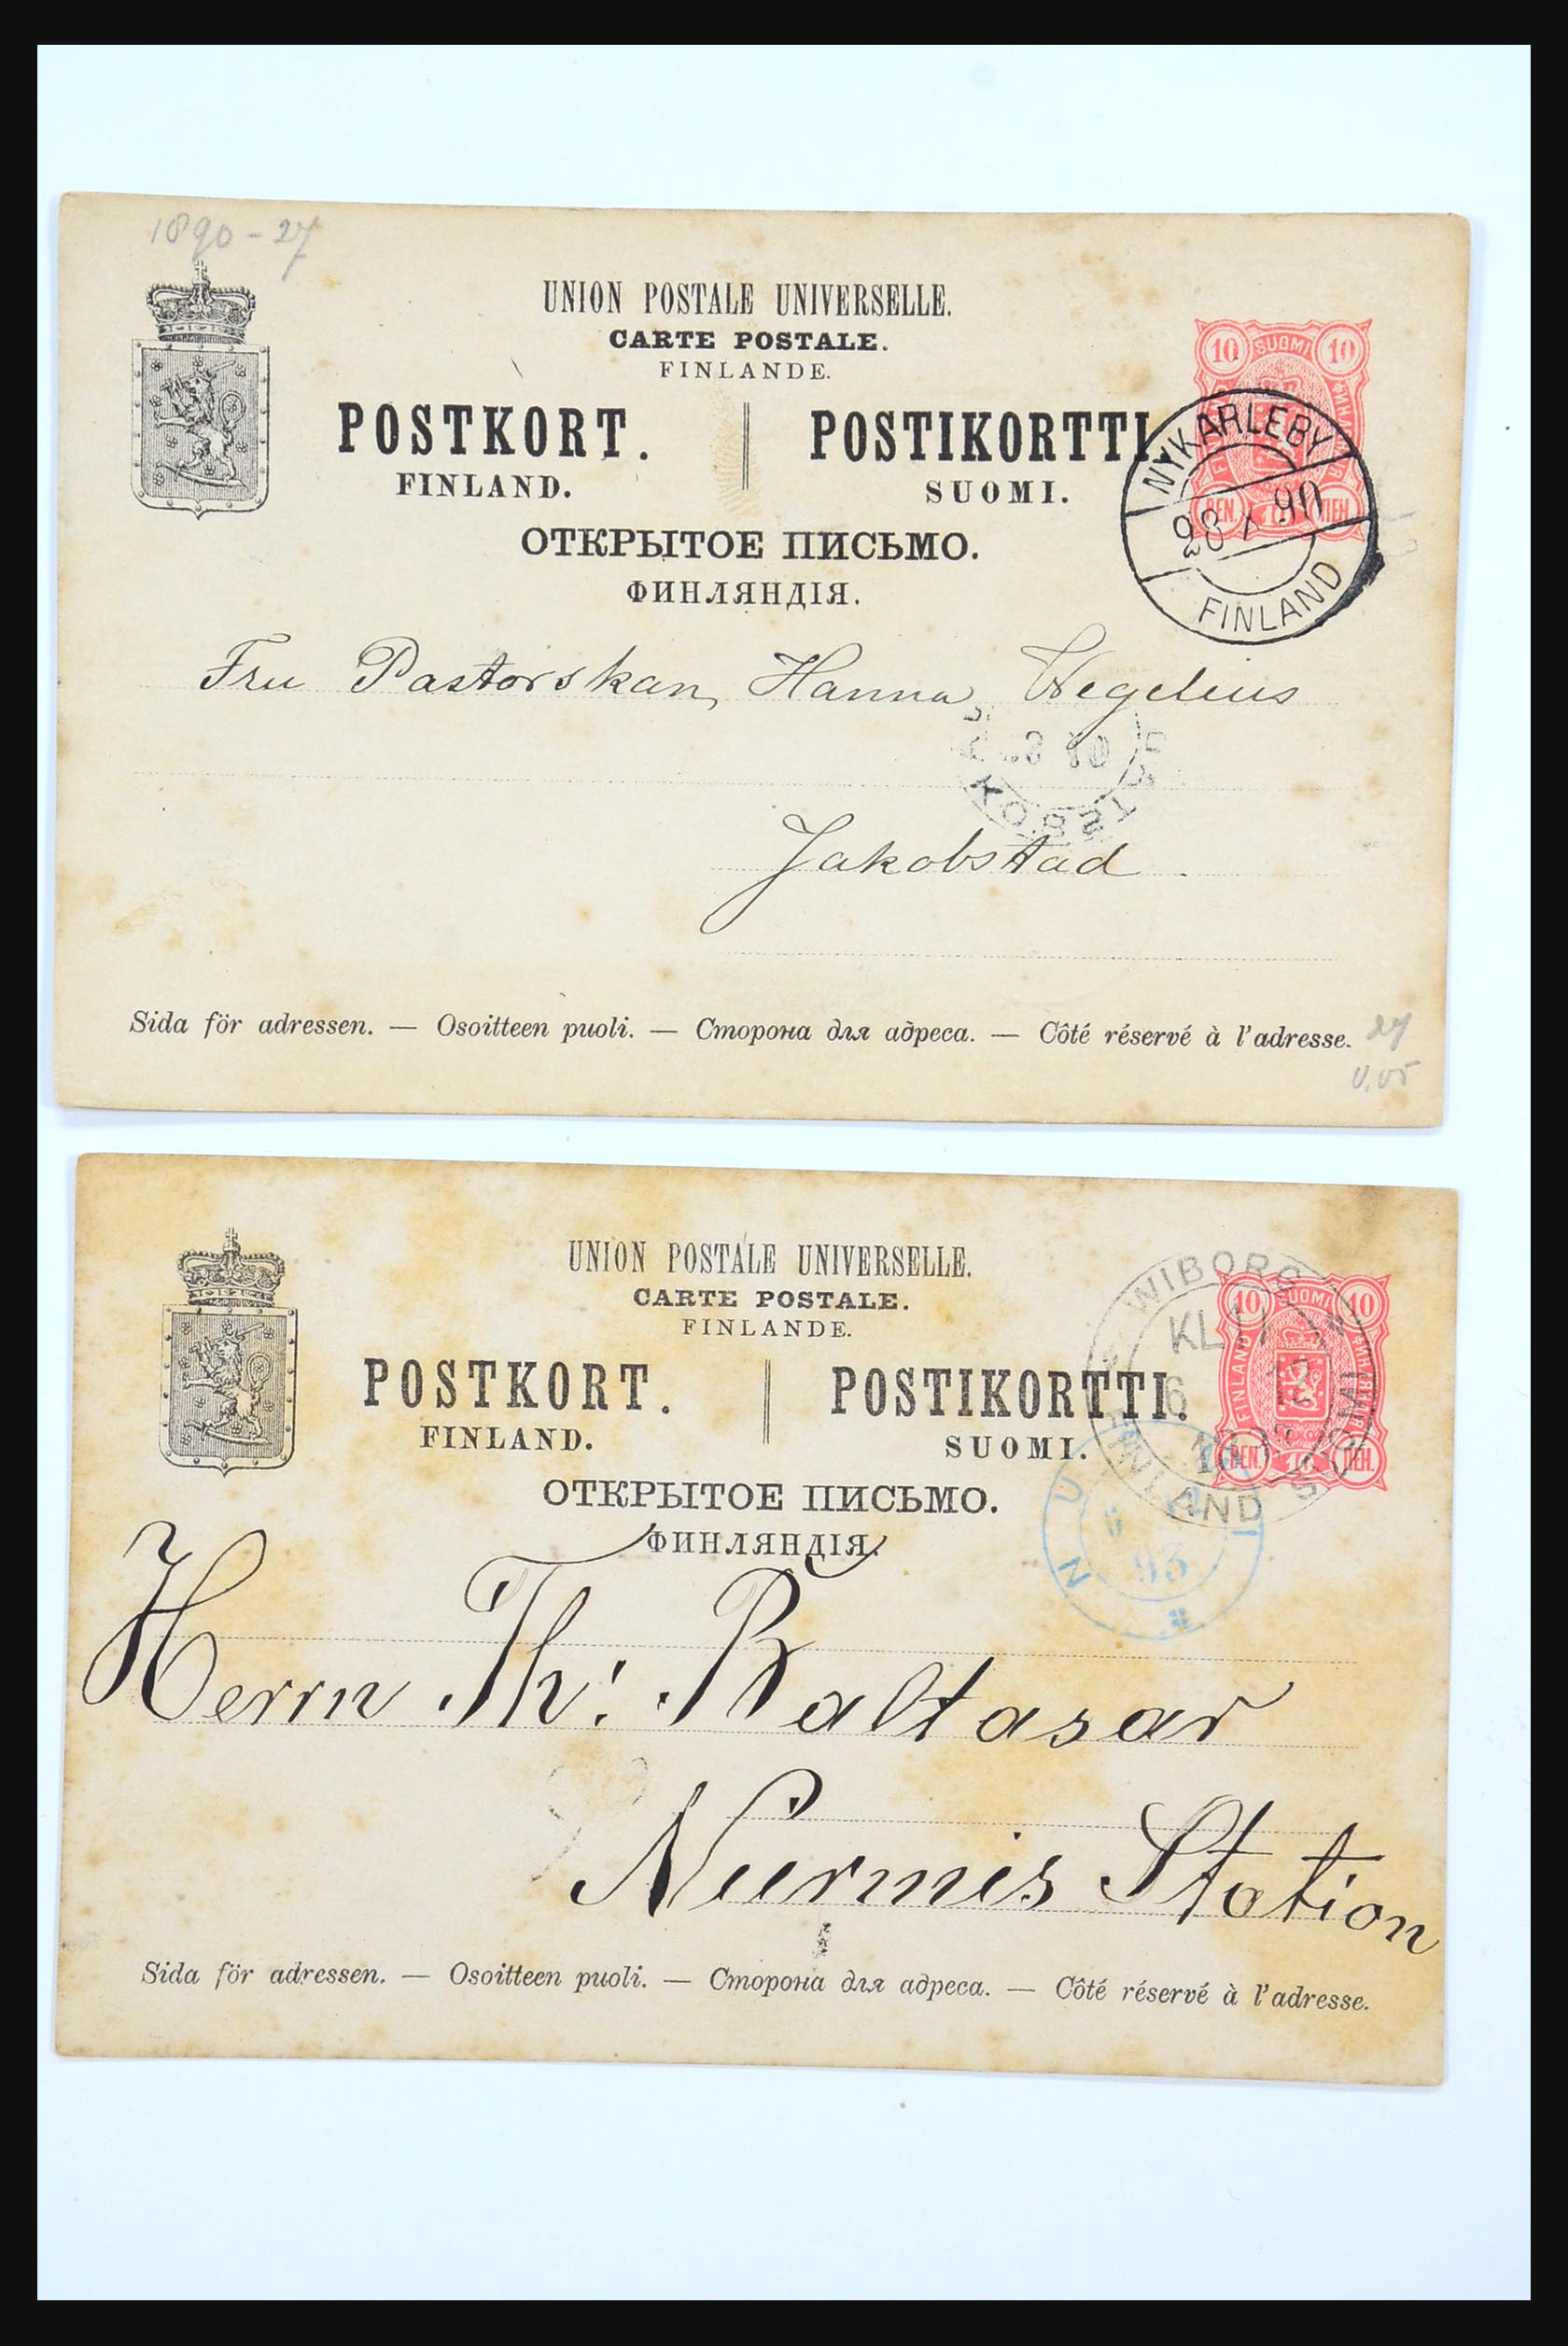 1890-27
UNION POSTALE UNIVERSELLE.
CARTE POSTALE.
FINLANDE.
10 SUOMI 10
POSTKORT. POSTIKORTTI.
FINLAND. SUOMI.
PEN. 10 ПЕН.
NYKARLEBY
90
FINLAND
ОТКРЫТОЕ ПИСЬМО.
ФИНЛЯНДІЯ.
Fru Pastorskan, Hanna Wegelius
Jakobstad
Sida för adressen. — Osoitteen puoli. — Сторона для адреса. — Côté réservé à l'adresse.
27
0.05
UNION POSTALE UNIVERSELLE.
CARTE POSTALE.
FINLANDE.
10 SUOMI 10
FINLAND
PEN. 10 ПЕН.
WIBORG
KL 11
6 12
FINLAND SUOMI
POSTKORT. POSTIKORTTI.
FINLAND. SUOMI.
ОТКРЫТОЕ ПИСЬМО.
ФИНЛЯНДІЯ.
93
Herrn Th: Baltasar
Nurmis Station
Sida för adressen. — Osoitteen puoli. — Сторона для адреса. — Côté réservé à l'adresse.